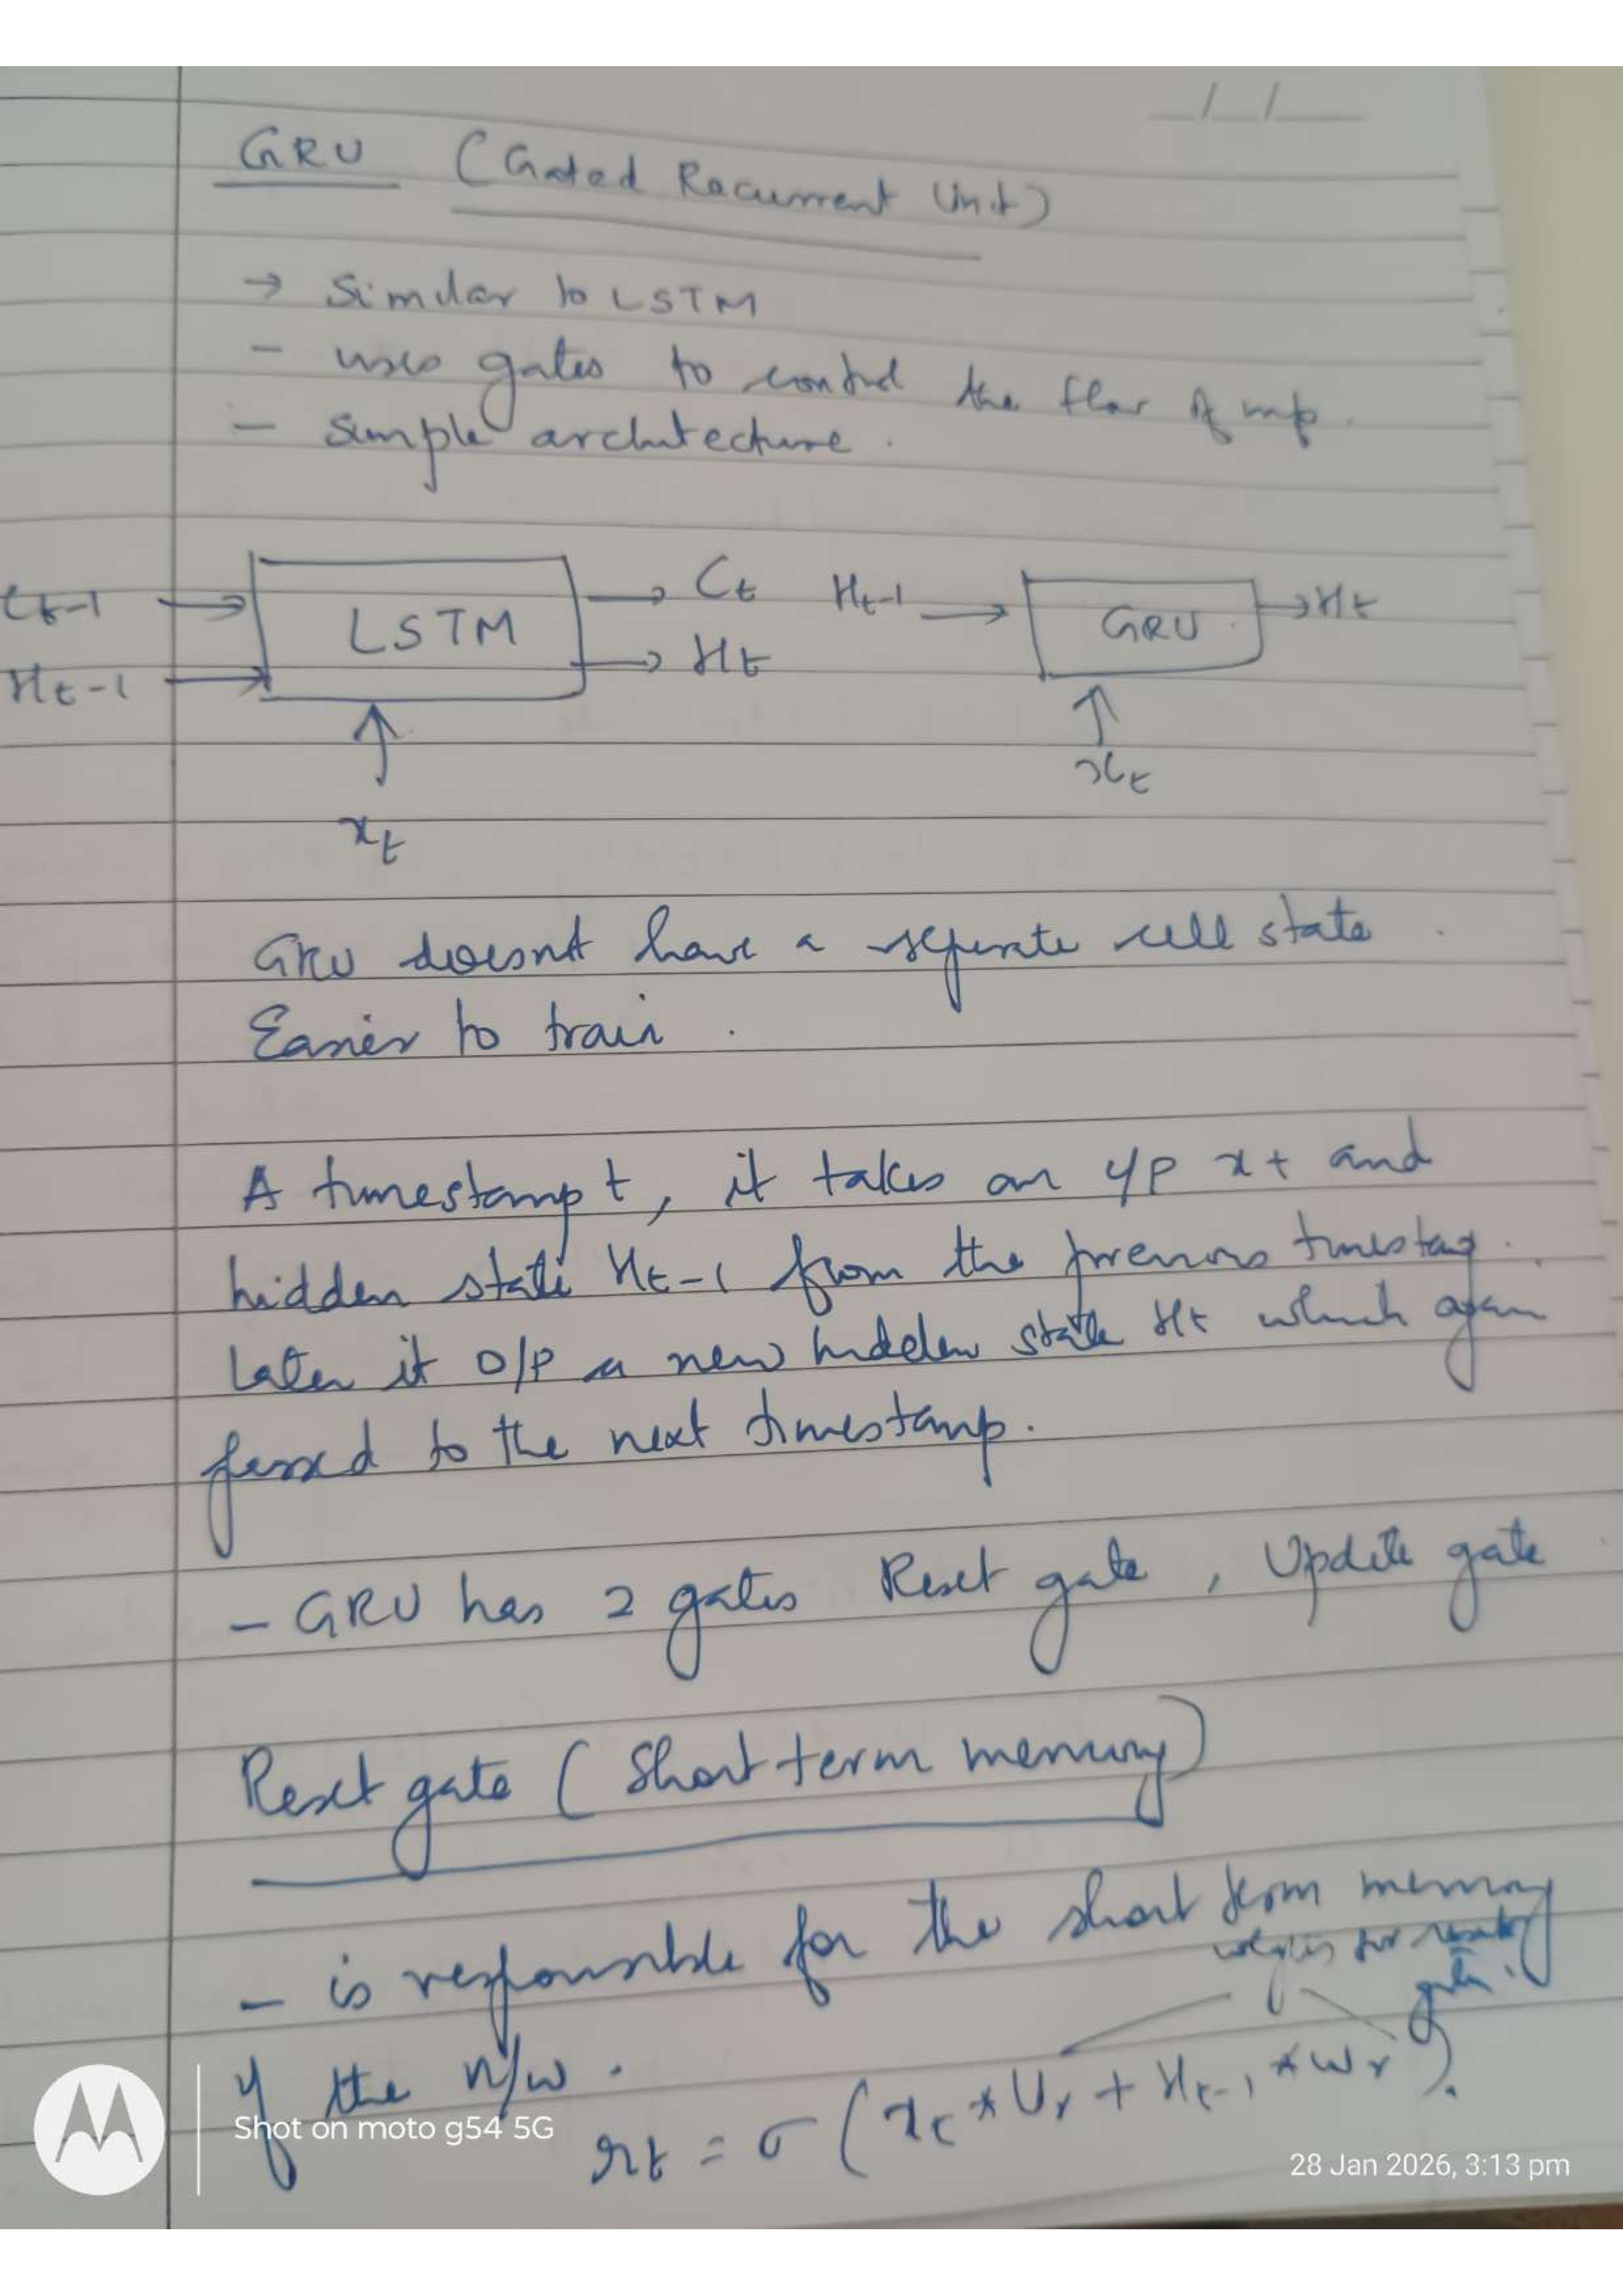 __/__/____
GRU (Gated Recurrent Unit)
→ Similar to LSTM
- uses gates to control the flow of inf.
- Simple architecture.
Ct-1 → LSTM → Ct Ht-1 → GRU → Ht
Ht-1 → → Ht
↑ ↑
xt xt
GRU doesnt have a seperate cell state.
Easier to train.
A timestamp t, it takes an i/p xt and
hidden state Ht-1 from the previous timestamp.
Later it o/p a new hidden state Ht which again
passed to the next timestamp.
- GRU has 2 gates Reset gate, Update gate
Reset gate (Short term memory)
- is responsible for the short term memory
weights for
gate.
of the n/w.
rt = σ (xt * Ur + Ht-1 * wr).
Shot on moto g54 5G
28 Jan 2026, 3:13 pm